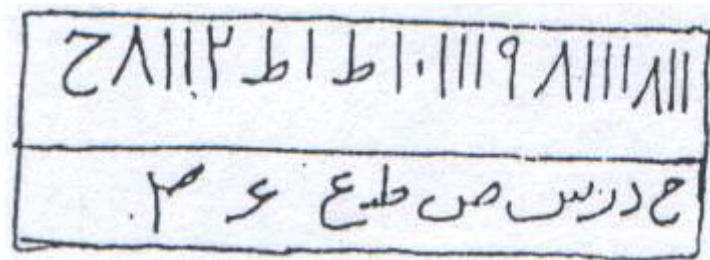 ح٨١١١٢ ط ا ط ١٠١١١٩ ٨١١١١٨١١١
ح د ر س ص ط ع ء م